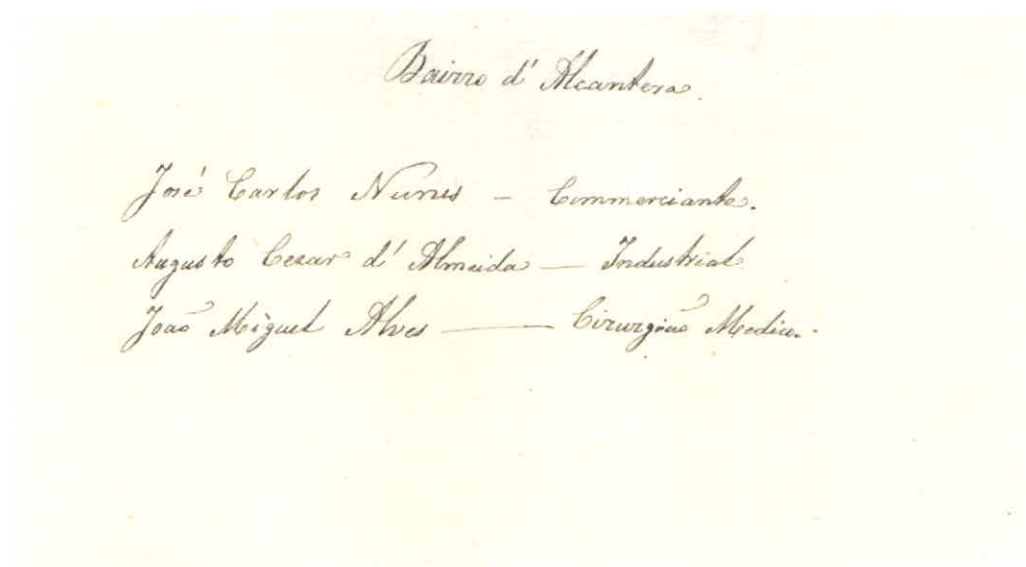 Bairro d' Alcantera.
José Carlos Nunes – Commerciante.
Augusto Cezar d' Almeida — Industrial
João Miguel Alves —— Cirurgião Medico.